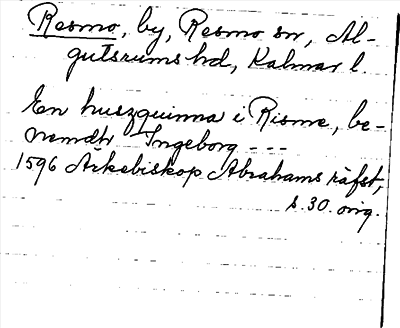 Resmo, by, Resmo sn, Al-
gutsrums hd, Kalmar l.
En huszquinna i Risme, be-
nemdh Ingeborg ---
1596 Ärkebiskop Abrahams räfst,
s. 30. orig.